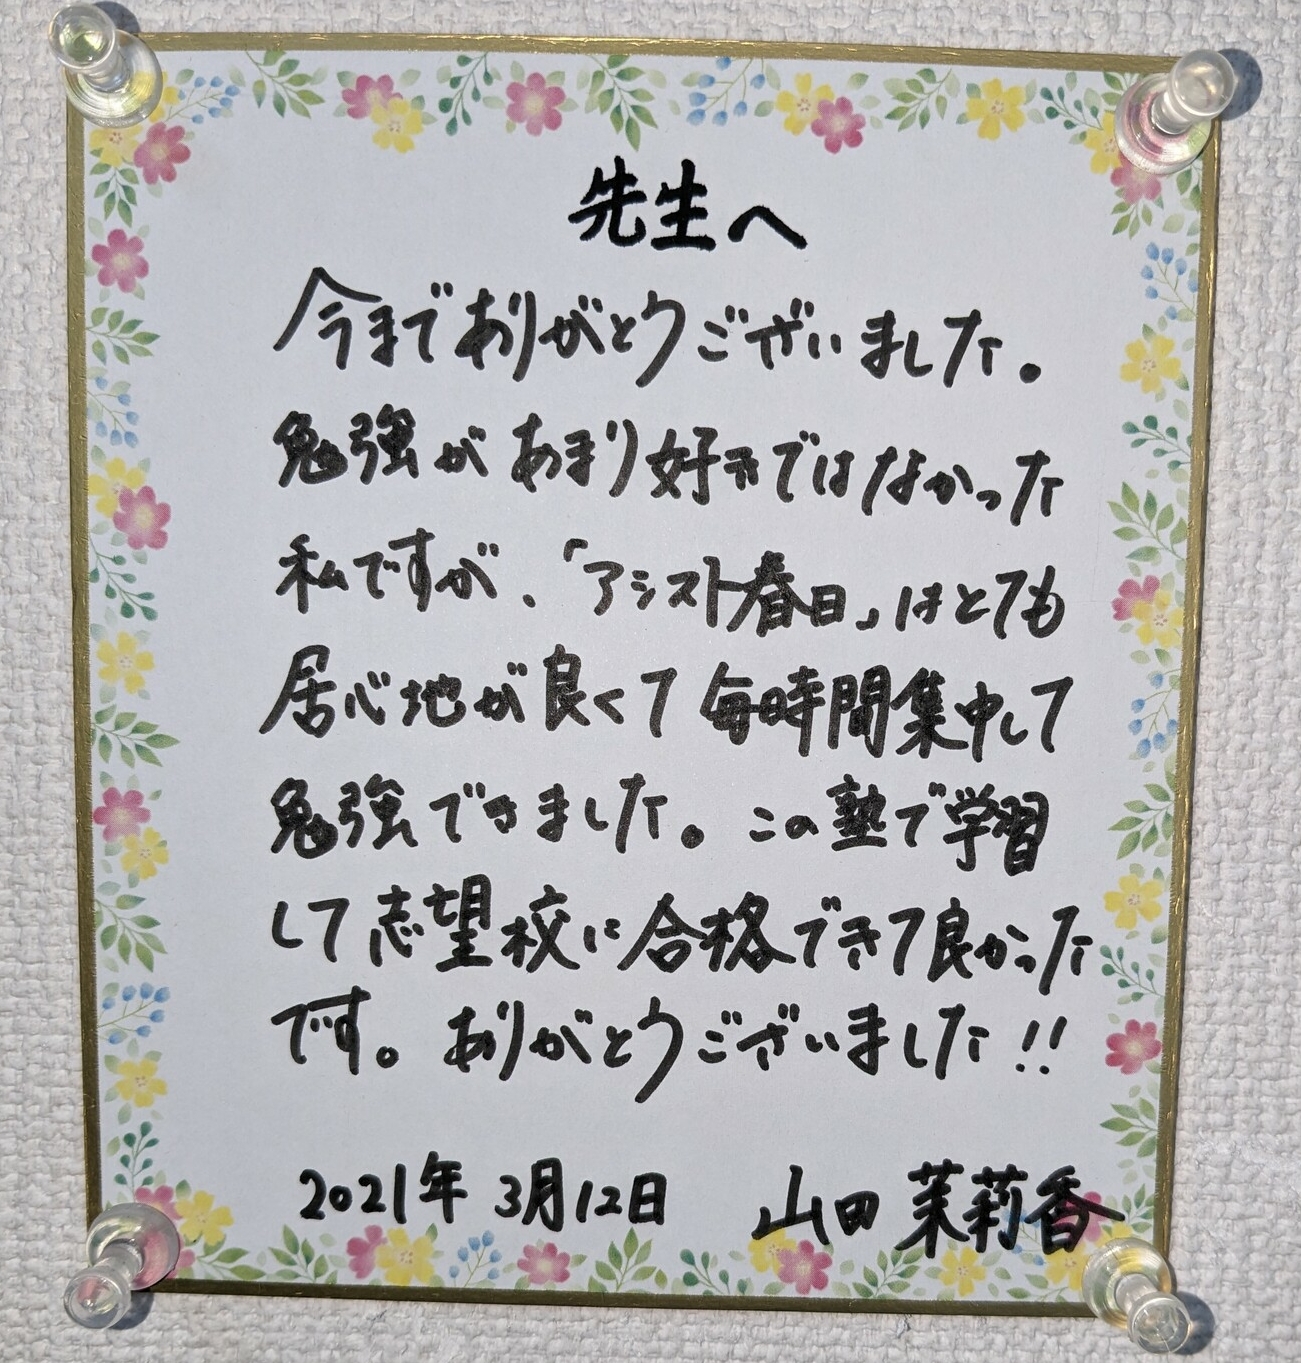 先生へ
今までありがとうございました。
勉強があまり好きではなかった
私ですが、「アシスト春日」はとても
居心地が良くて毎時間集中して
勉強できました。この塾で学習
して志望校に合格できて良かった
です。ありがとうございました!!
2021年 3月12日 山田 茉莉香